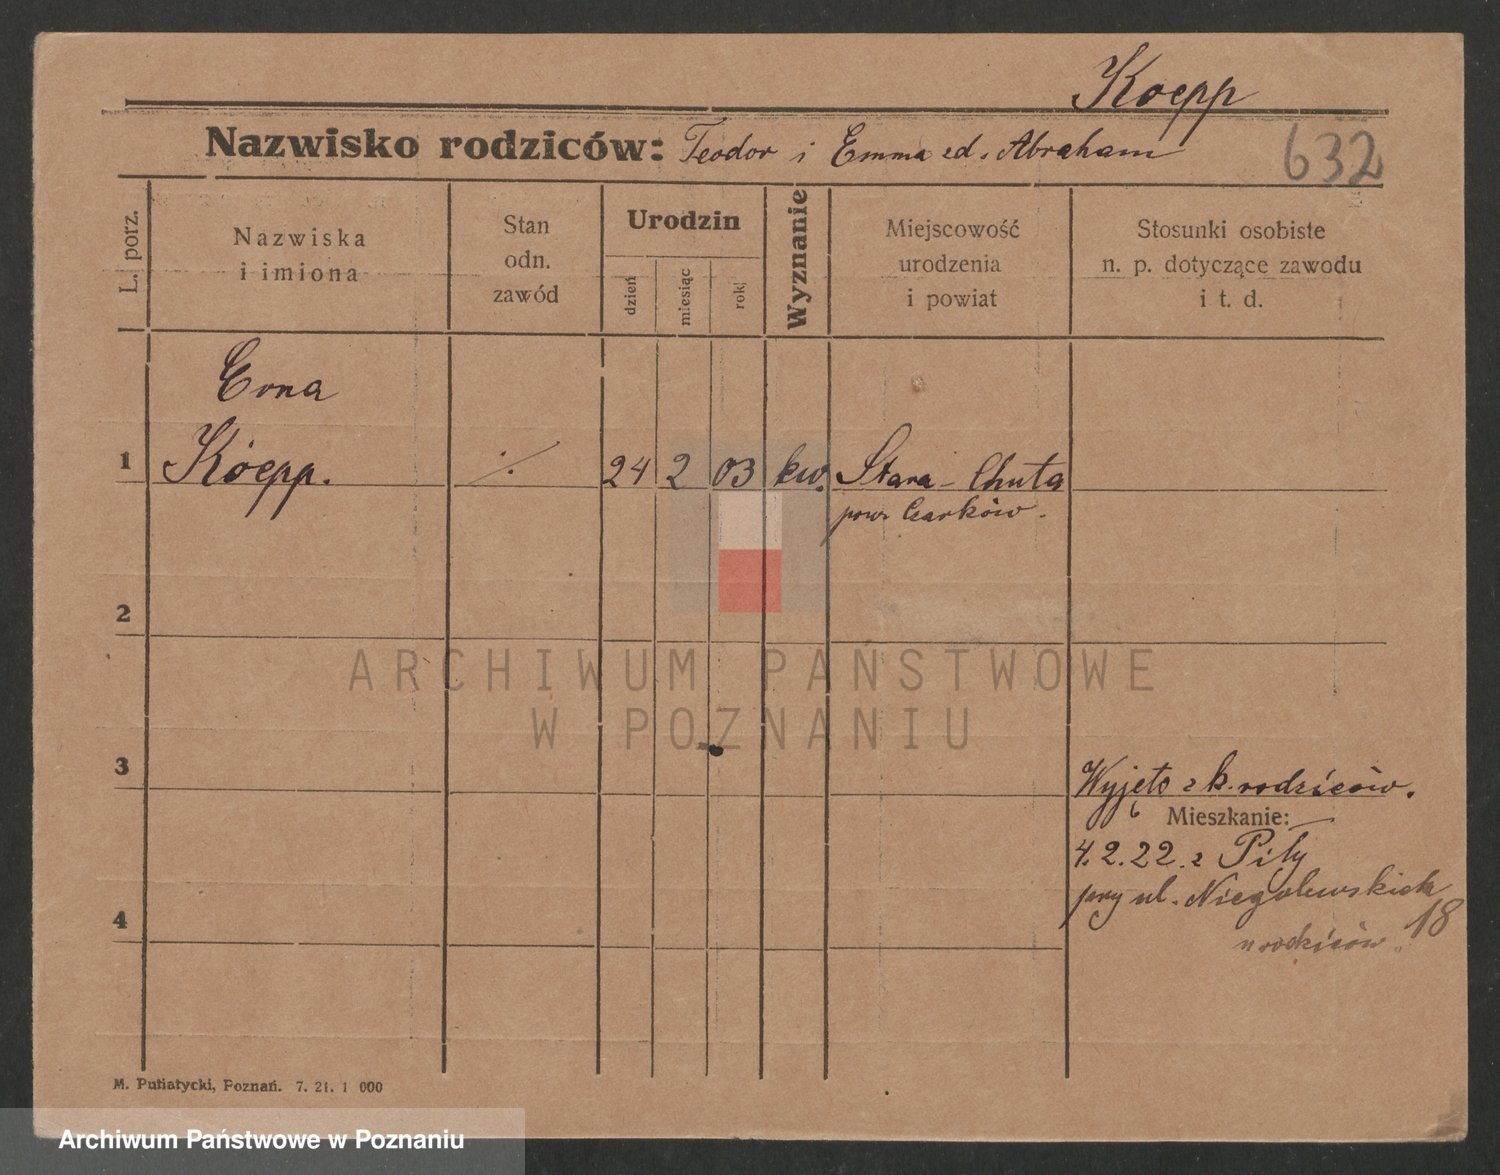 Koepp
Nazwisko rodziców: Teodor i Emma ed. Abraham
632
L. porz.
Nazwiska
i imiona
Stan
odn.
zawód
Urodzin
dzień
miesiąc
rok
Wyznanie
Miejscowość
urodzenia
i powiat
Stosunki osobiste
n. p. dotyczące zawodu
i t. d.
Erna
1 Köepp. ./. 24 2 03 kw. Stara-Chuta
pow. Czarków.
2
ARCHIWUM PAŃSTWOWE
W POZNANIU
3
Wyjęto z k. rodziców.
Mieszkanie:
4.2.22. z Piły
przy ul. Niegolewskich
18
u rodziców.
4
M. Putiatycki, Poznań. 7. 21. 1 000
Archiwum Państwowe w Poznaniu